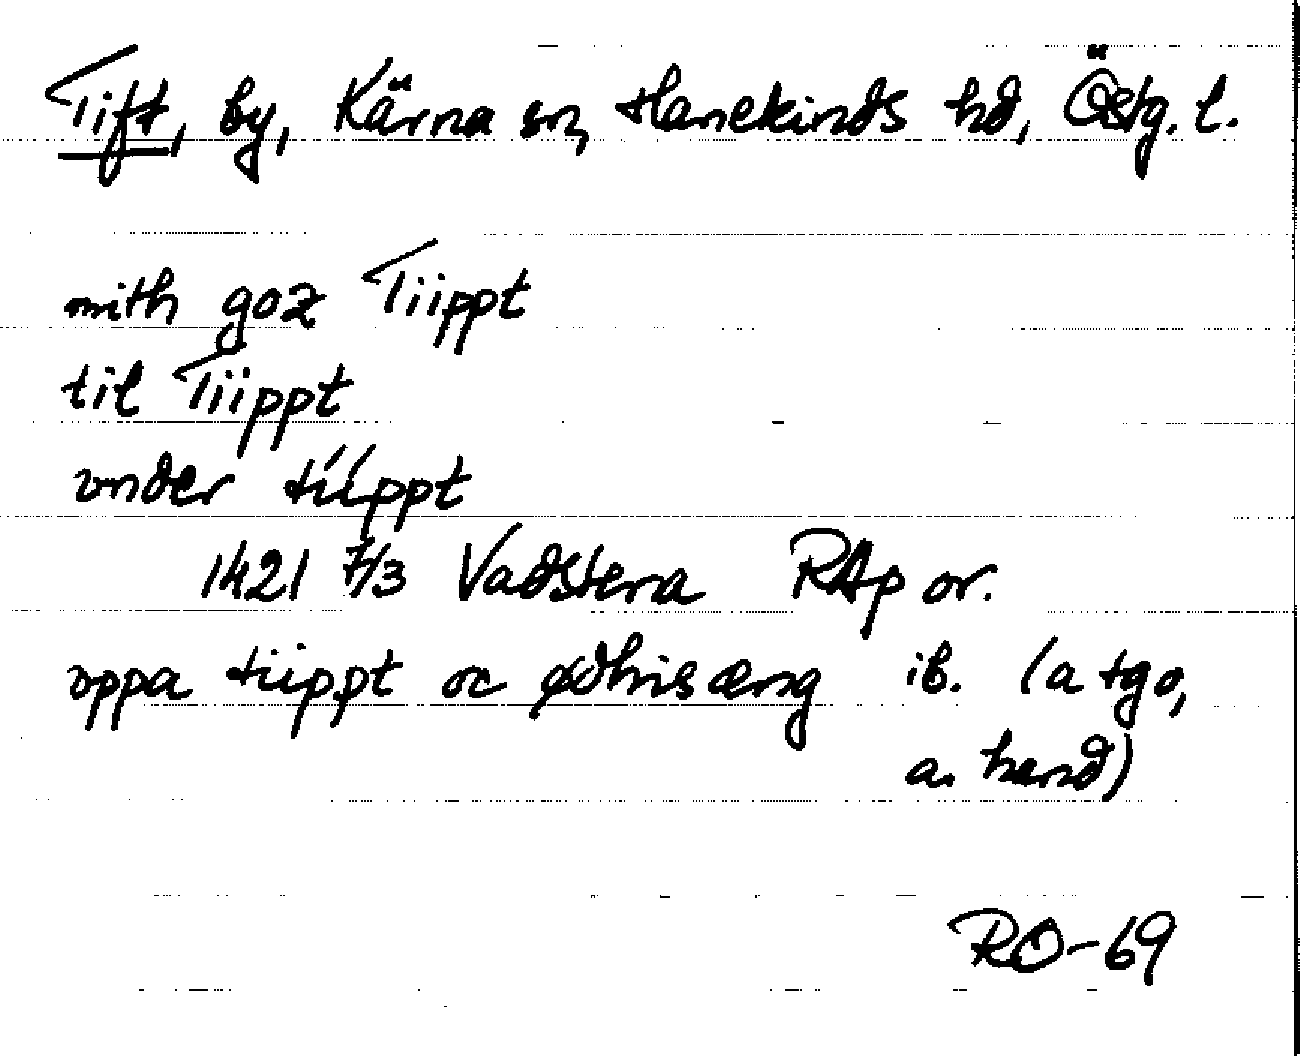 Tift, by, Kärna sn, Hanekinds hd, Östg. l.
mith goz Tiippt
til Tiippt
vnder tiippt
1421 7/3 Vadstena RAp or.
vppa tiippt oc ødhisæng ib. (a tgo,
a. hand)
RO-69